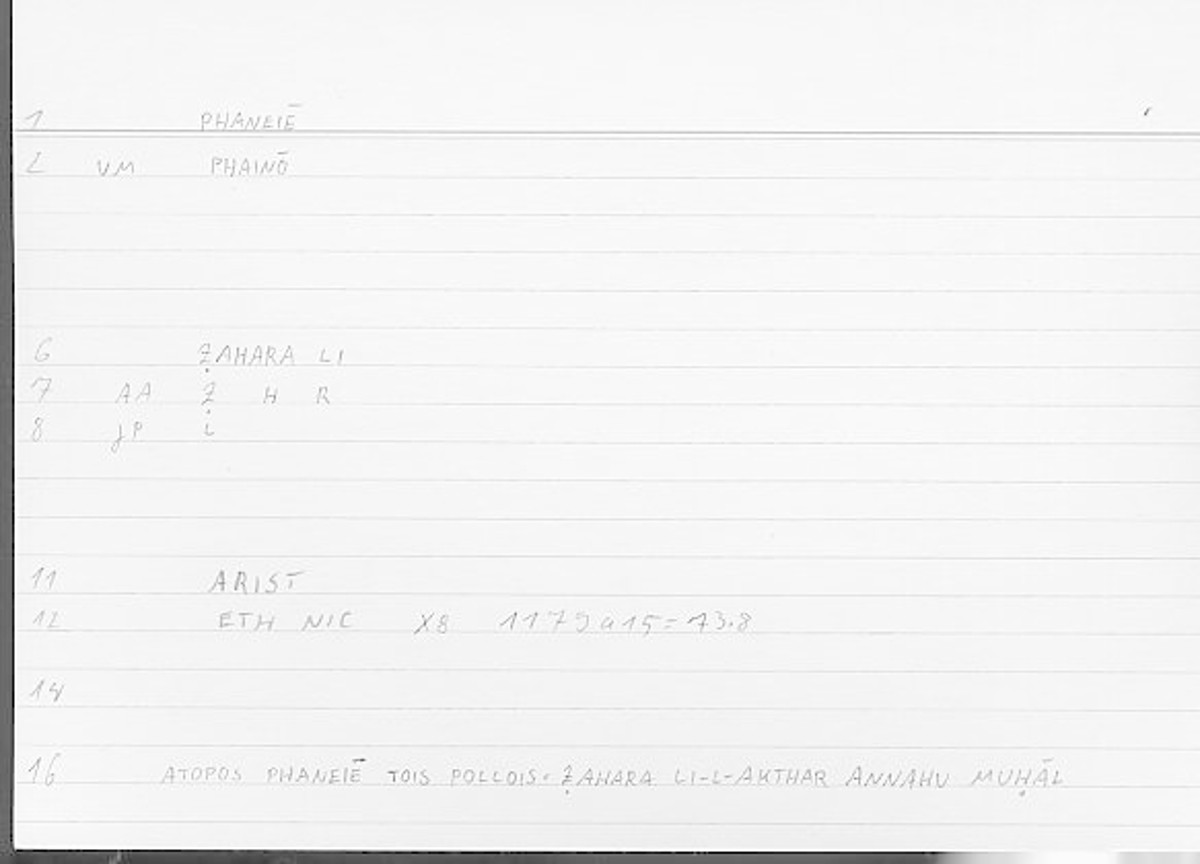 1 PHANEIĒ
2 VM PHAINŌ
6 ẒAHARA LI
7 AA Ẓ H R
8 JP i
11 ARIST
12 ETH NIC X8 1179a15=73.8
14
16 ATOPOS PHANEIĒ TOIS POLLOIS: ẒAHARA LI-L-AKTHAR ANNAHU MUḤĀL